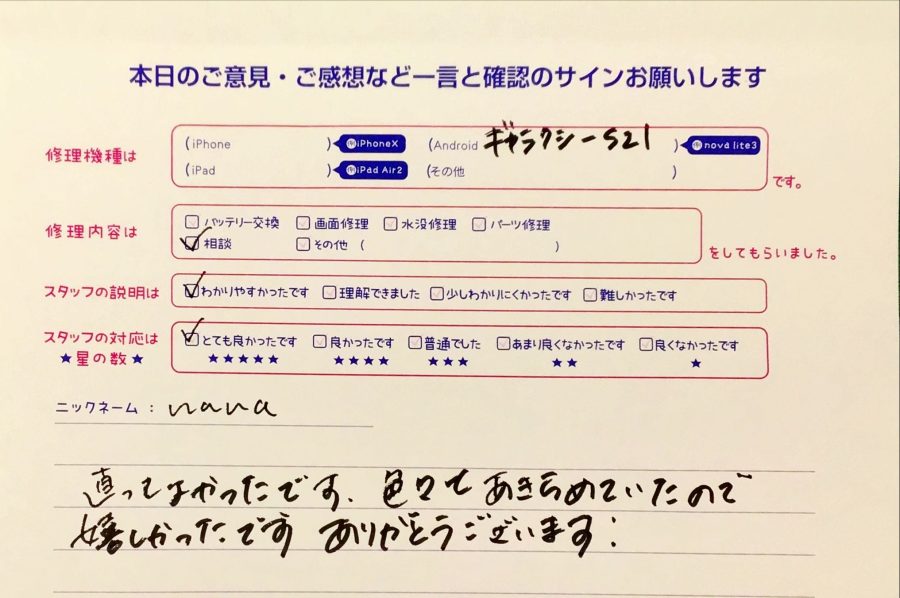 本日のご意見・ご感想など一言と確認のサインお願いします
修理機種は (iPhone ) iPhoneX (Android ギャラクシーS21 ) nova lite3
(iPad ) iPad Air2 (その他 ) です。
修理内容は □バッテリー交換 □画面修理 □水没修理 □パーツ修理
☑相談 □その他 ( ) をしてもらいました。
スタッフの説明は ☑わかりやすかったです □理解できました □少しわかりにくかったです □難しかったです
スタッフの対応は ☑とても良かったです □良かったです □普通でした □あまり良くなかったです □良くなかったです
★星の数★ ★★★★★ ★★★★ ★★★ ★★ ★
ニックネーム : nana
直ってよかったです、色々とあきらめていたので
嬉しかったです ありがとうございます!